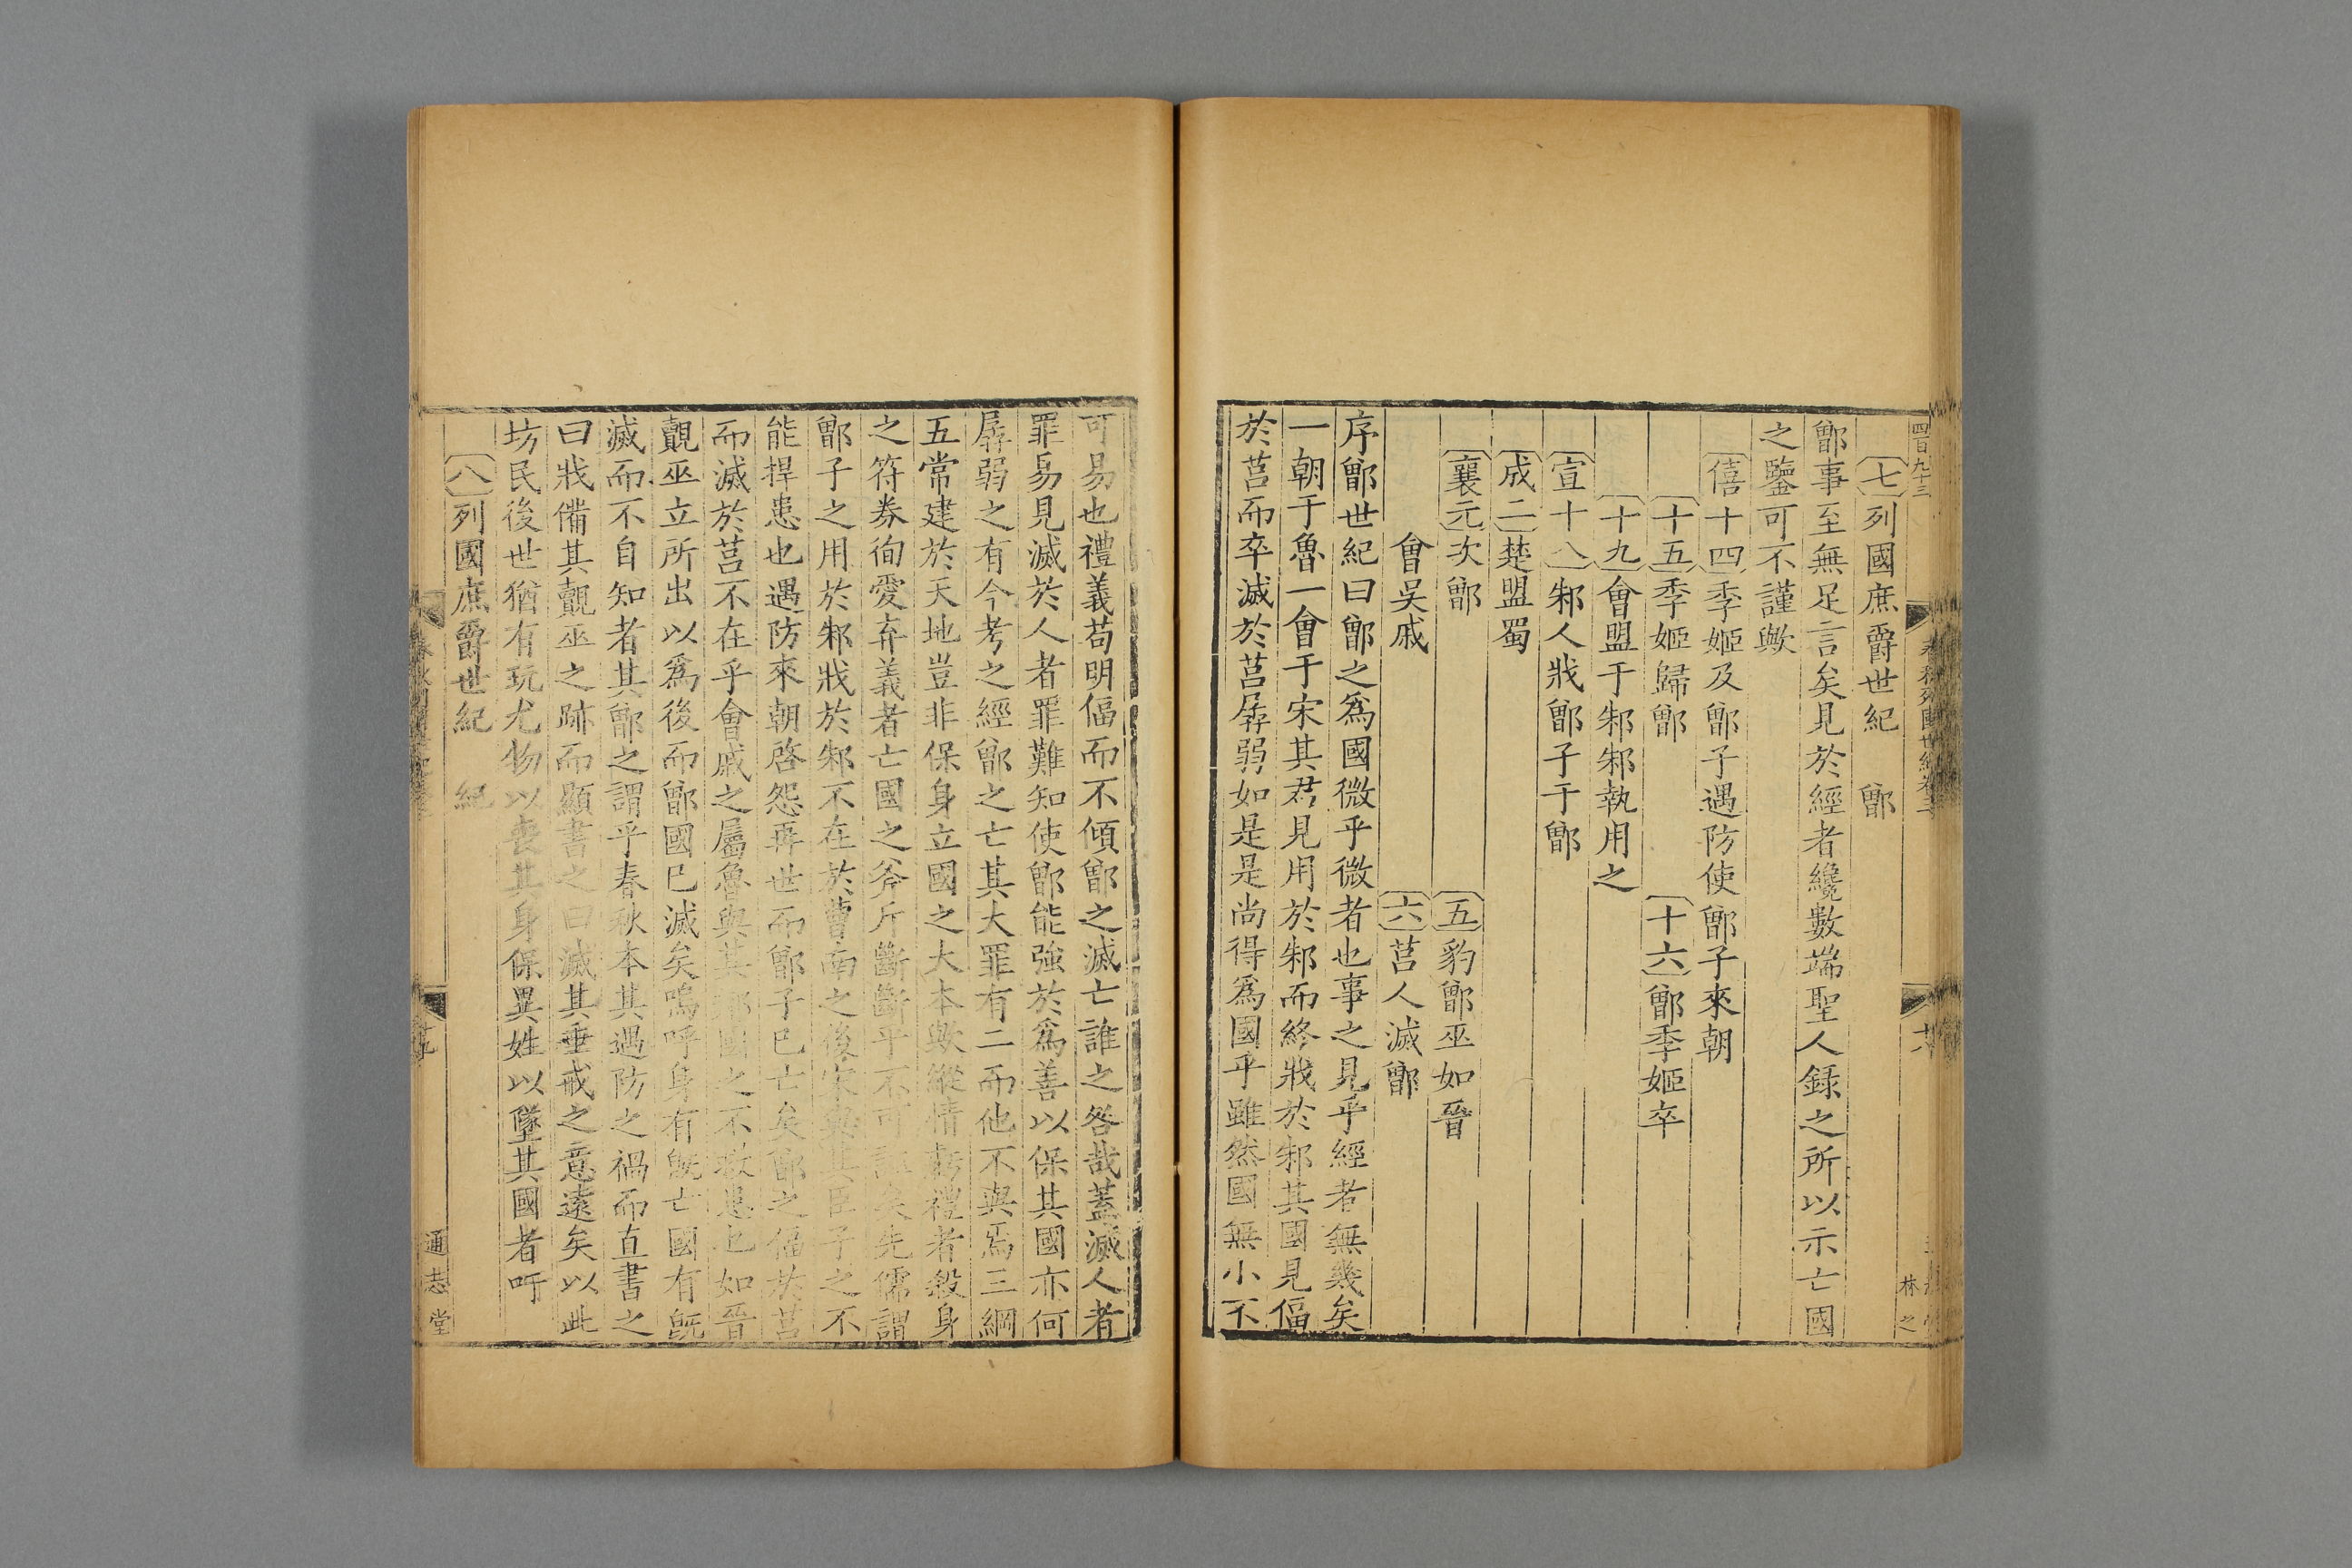 四百九十三
七 列國庶爵世紀 鄫
鄫事至無足言矣見於經者纔數端聖人録之所以示亡國
之鑒可不謹歟
僖十四季姬及鄫子遇防使鄫子來朝
十五季姬歸鄫 十六鄫季姬卒
十九會盟于邾邾執用之
宣十八邾人戕鄫子于鄫
成二楚盟蜀
襄元次鄫 五豹鄫巫如晉
會吴戚 六莒人滅鄫
序鄫世紀曰鄫之爲國微乎微者也事之見乎經者無幾矣
一朝于魯一會于宋其君見用於邾而終戕於邾其國見偪
於莒而卒滅於莒孱弱如是是尚得爲國乎雖然國無小不
可易也禮義苟明偪而不傾鄫之滅亡誰之咎哉蓋滅人者
罪易見滅於人者罪難知使鄫能強於爲善以保其國亦何
孱弱之有今考之經鄫之亡其大罪有二而他不與焉三綱
五常建於天地豈非保身立國之大本歟縱情虧禮者殺身
之符券徇愛弃義者亡國之斧斤斷斷乎不可誣矣先儒謂
鄫子之用於邾戕於邾不在於曹南之後宋與其臣子之不
能捍患也遇防來朝啓怨再世而鄫子已亡矣鄫之偪於莒
而滅於莒不在乎會戚之屬魯與其鄰國之不救患也如晉
覿巫立所出以爲後而鄫國已滅矣嗚呼身有旣亡國有旣
滅而不自知者其鄫之謂乎春秋本其遇防之禍而直書之
曰戕備其覿巫之跡而顯書之曰滅其垂戒之意遠矣以此
坊民後世猶有玩尤物以喪其身保異姓以墜其國者吁
八 列國庶爵世紀 紀
通志堂